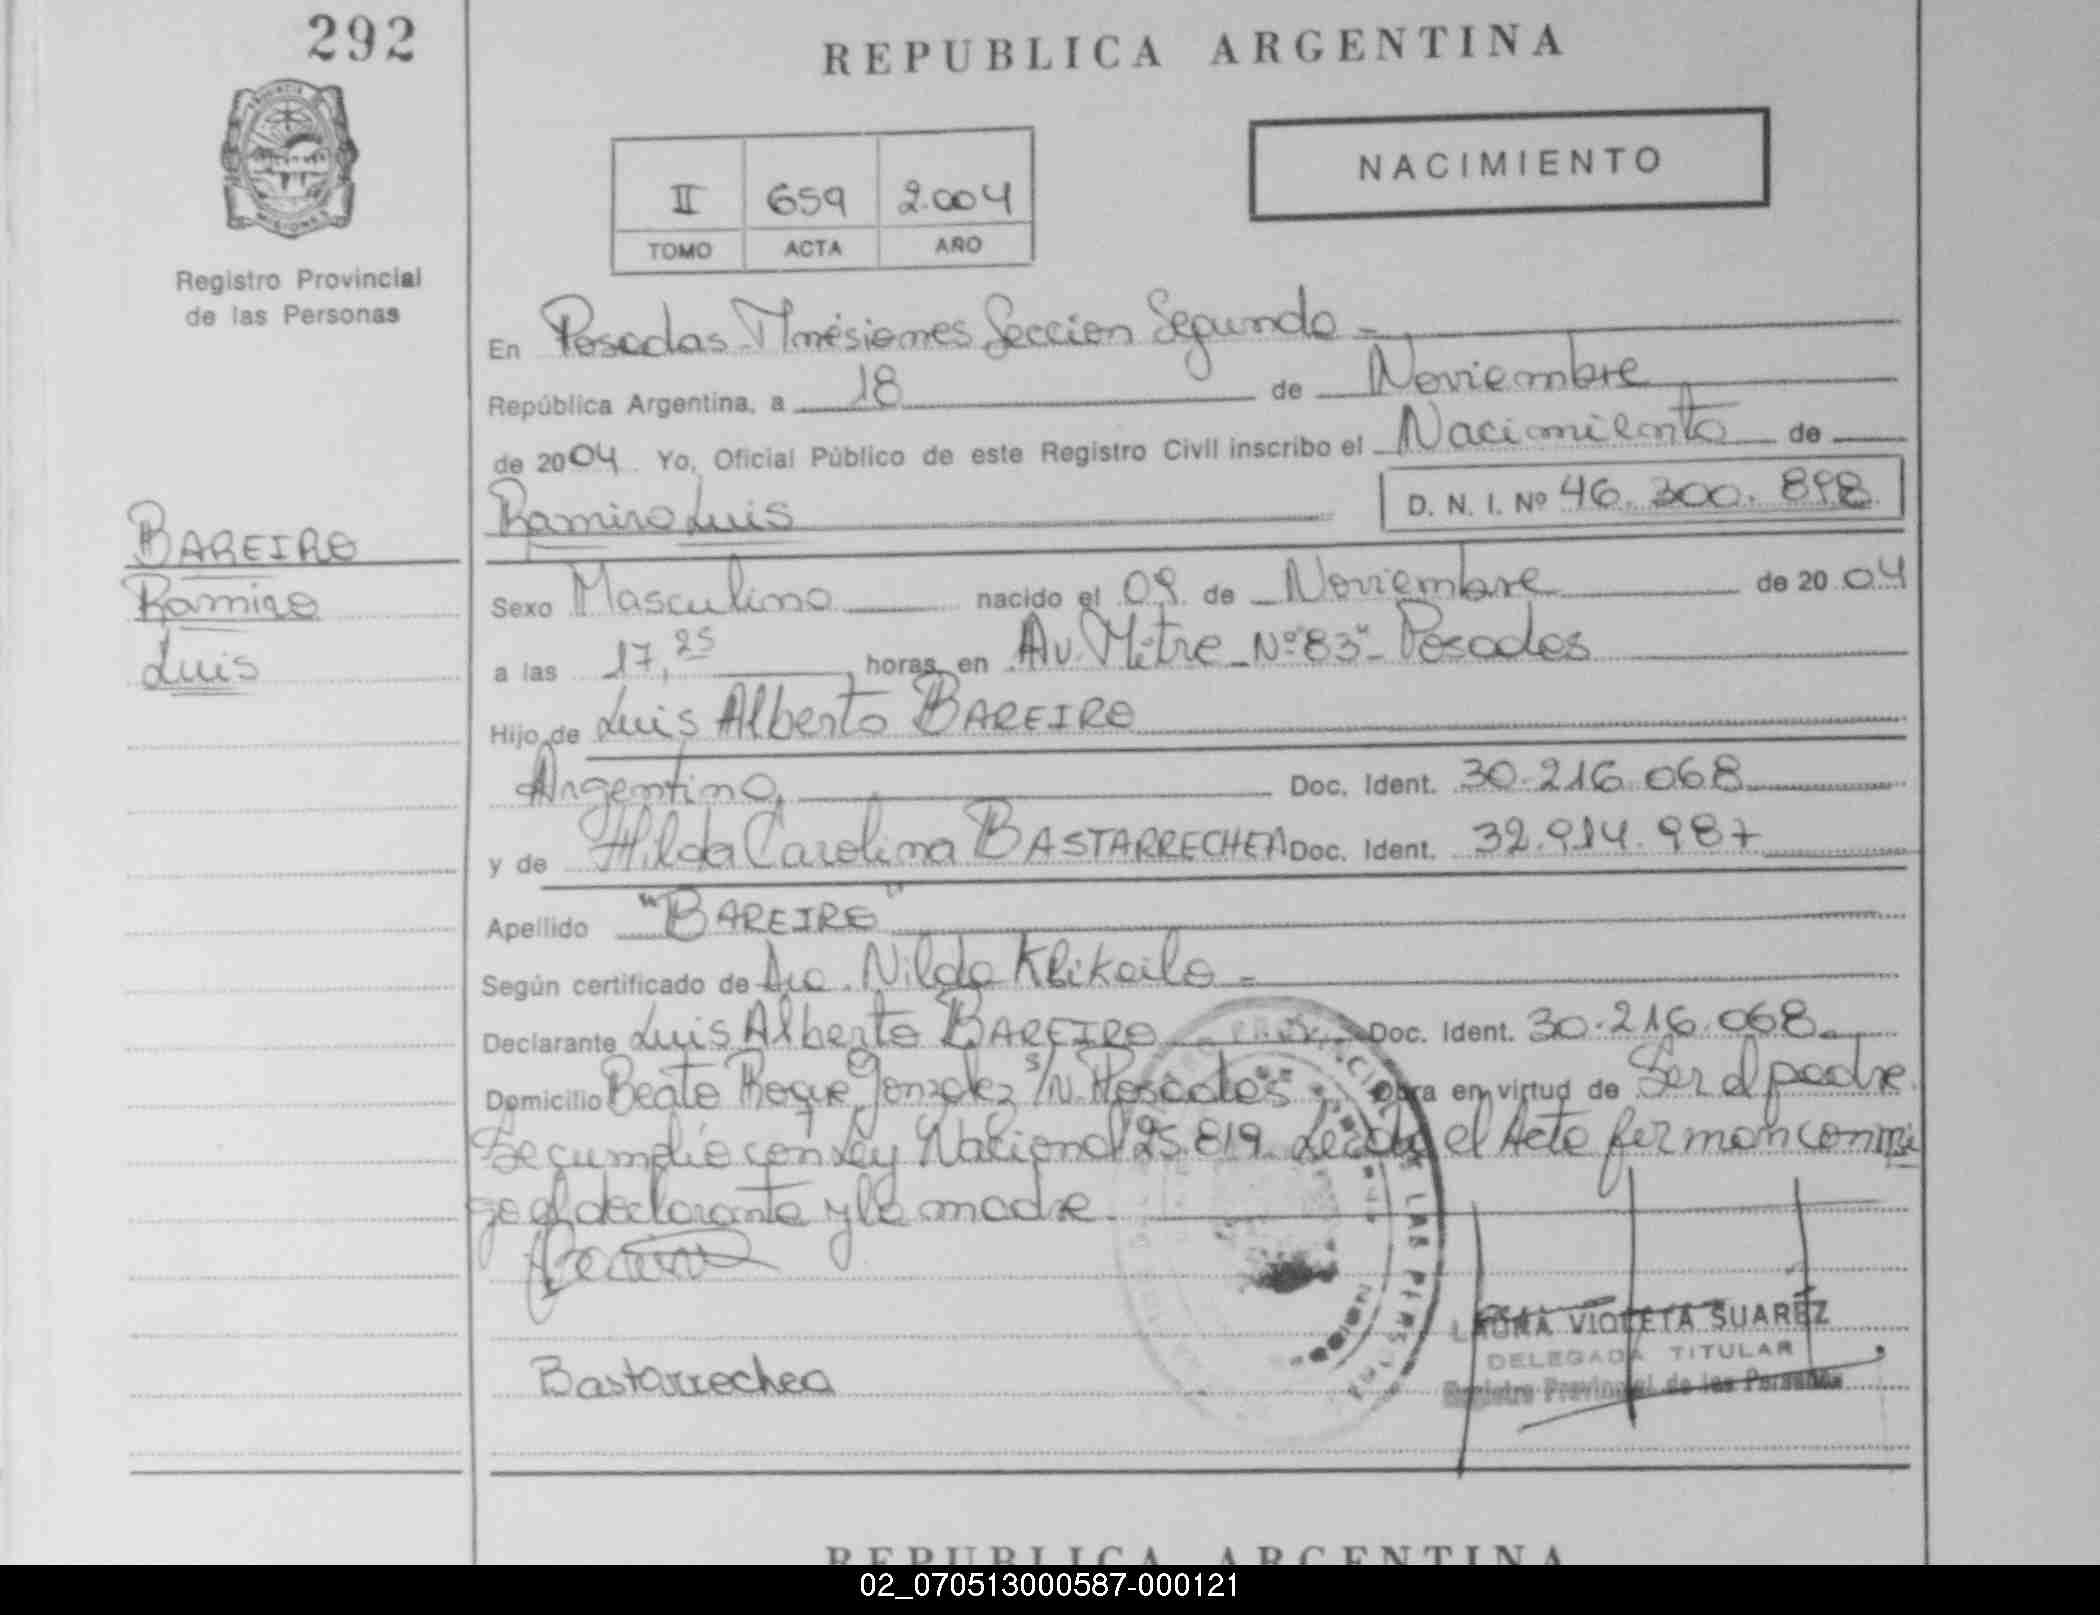 292
REPUBLICA ARGENTINA
NACIMIENTO
II 659 2.004
TOMO ACTA AÑO
Registro Provincial
de las Personas
En Posadas Misiones Seccion Segunda
República Argentina, a 18 de Noviembre
de 2004 Yo, Oficial Público de este Registro Civil inscribo el Nacimiento de
Ramiro Luis D. N. I. Nº 46.300.898
BAREIRO
Ramiro
Luis
Sexo Masculino nacido el 09 de Noviembre de 2004
a las 17,25 horas en Av. Mitre Nº 83 - Posadas
Hijo de Luis Alberto BAREIRO
Argentino, Doc. Ident. 30.216.068
y de Hilda Carolina BASTARRECHEA Doc. Ident. 32.914.987
Apellido "BAREIRO"
Según certificado de Dra. Nilda
Declarante Luis Alberto BAREIRO Doc. Ident. 30.216.068
Domicilio Beato Roque Gonzalez s/N. Posadas Obra en virtud de Ser el padre
Se cumplió con Ley Nacional 25.819. Leida el Acta firman conmi
go el declarante y la madre
Bastarrechea
LAURA VIOLETA SUAREZ
DELEGADA TITULAR
Registro Provincial de las Personas
REPUBLICA ARGENTINA
02_070513000587-000121